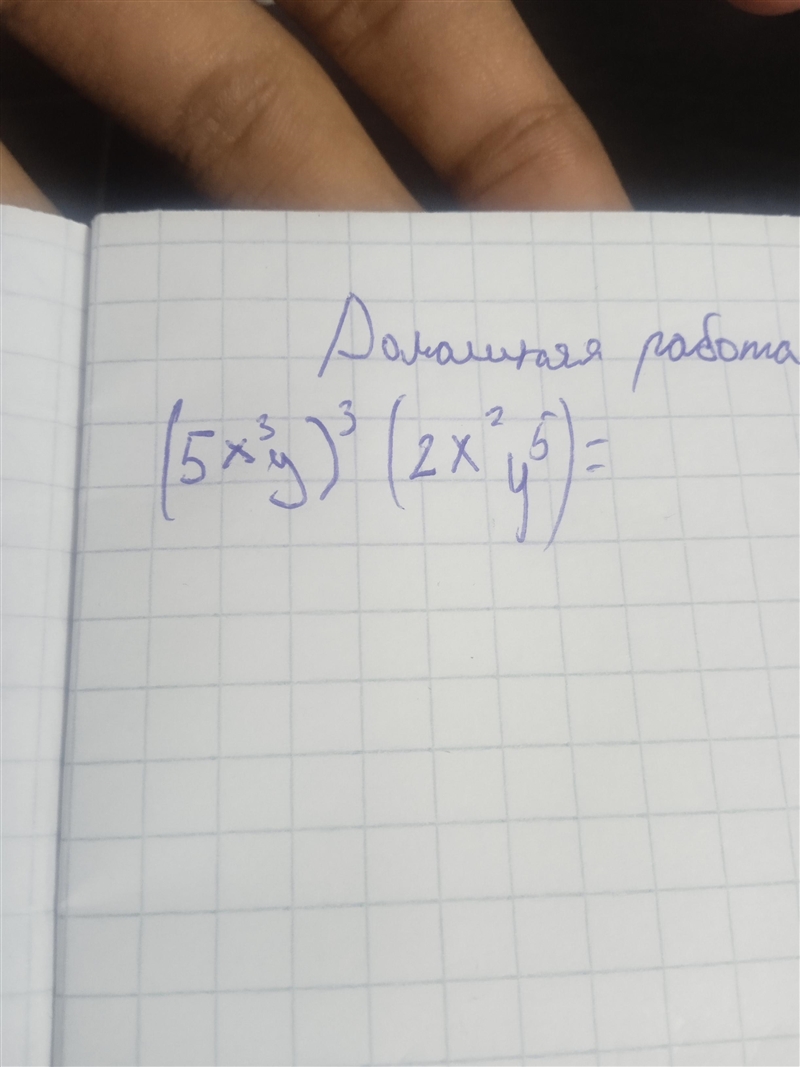 Домашняя работа
(5x³y)³ (2x²y⁵)=